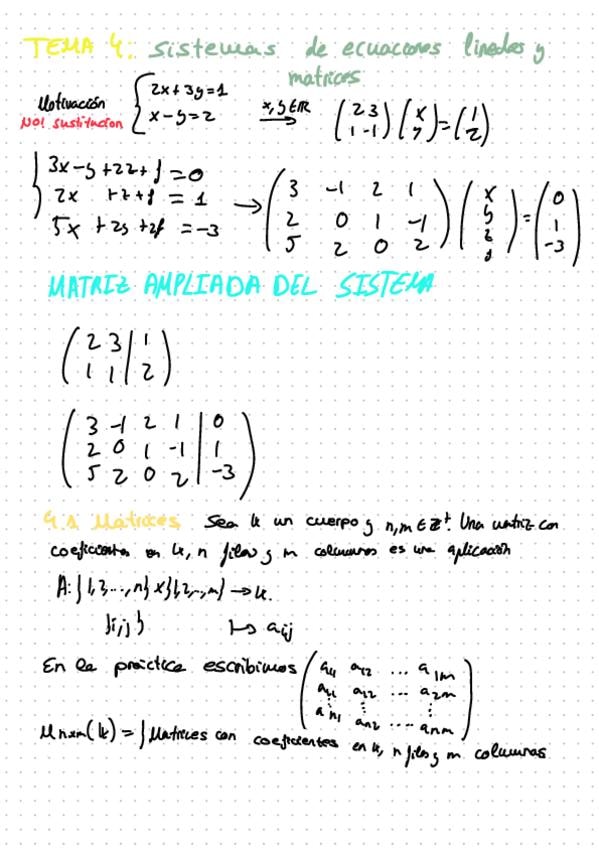 TEMA 4: sistemas de ecuacones lineales y
matrices
Motivación { 2x+3y=1
NO! sustitucion { x-y=2
x,y∈IR → (2 3; 1 -1) (x; y) = (1; 2)
3x-y+2z+f=0
2x +z+f = 1
5x +2y +2f = -3
→ (3 -1 2 1; 2 0 1 -1; 5 2 0 2) (x; y; z; y) = (0; 1; -3)
MATRIZ AMPLIADA DEL SISTEMA
2 3 | 1
1 1 | 2
3 -1 2 1 | 0
2 0 1 -1 | 1
5 2 0 2 | -3
4.1 Matrices Sea k un cuerpo y n,m ∈ Z⁺. Una matriz con
coeficientes en k, n filas y m columnas es una aplicación
A: {1,2,...,n} x {1,2,...,m} → k.
}i,j} ↦ aij
En la práctica escribimos
a11 a12 ... a1m
a11 a12 ... a2m
⋮ ⋮ ⋮
an1 an2 .... anm
Mnxm(k) = {Matrices con coeficientes en k, n filas y m columnas